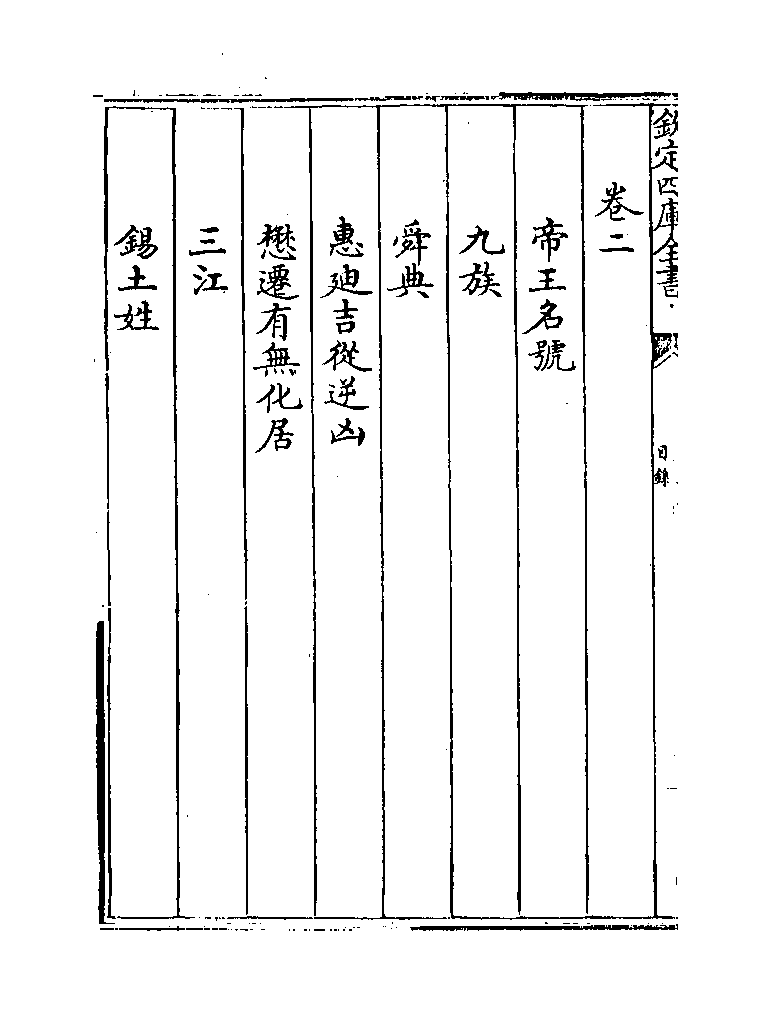 欽定四庫全書
目錄
卷二
帝王名號
九族
舜典
惠迪吉從逆凶
懋遷有無化居
三江
錫土姓